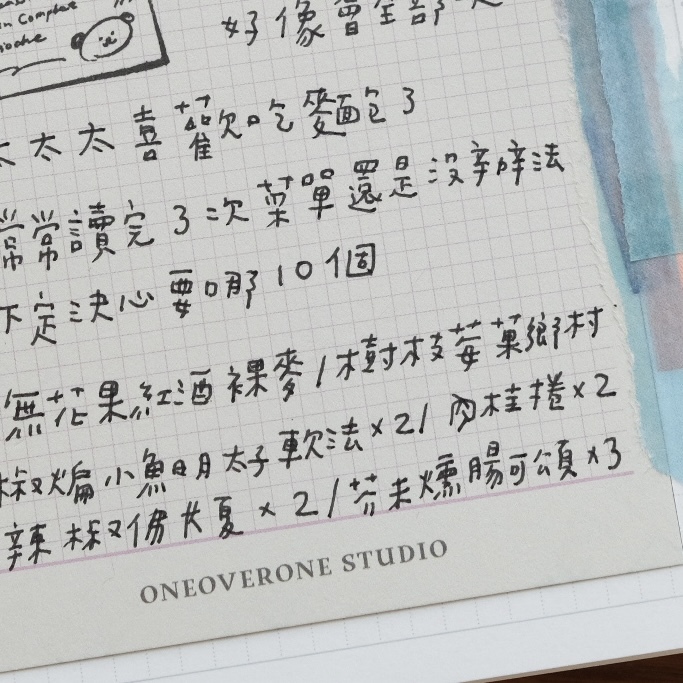 in Complet
好像會全部
太太太喜歡吃麵包了
常常讀完了次菜單還是沒辦法
下定決心要哪10個
無花果紅酒裸麥/樹枝莓菓鄉村
椒煸小魚明太子軟法×2/肉桂捲×2
辣椒佛卡夏×2/芥末燻腸可頌×3
ONEOVERONE STUDIO